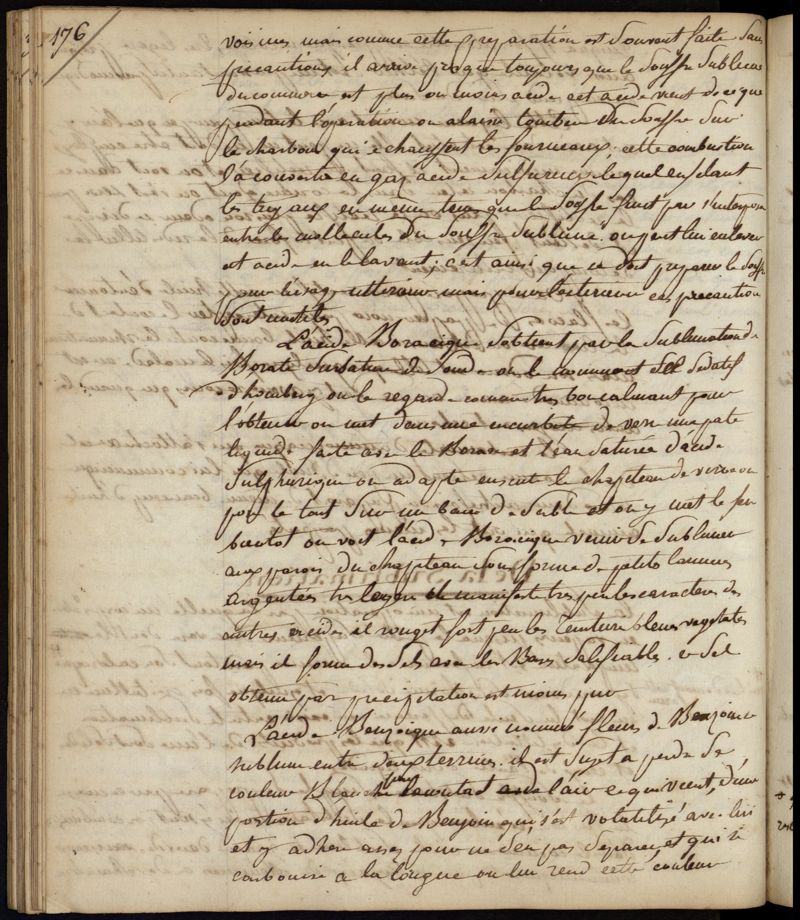 176
voisines mais comme cette preparation est Souvent faite Sans
precautions il arrive presque toujours que le Souffre Sublimé
du commerce est plus ou moins acide cet acide vient de ce que
pendant l'operation on a laissé tomber du Souffre Sur
le charbon qui echauffent les fourneaux. cette combustion
l'a convertie en gaz acide Sulfureux, lequel
en meme tems que le Souffre finit par s'interposer
entre les mollecules du Souffre Sublimé. on peut lui enlever
cet acide en le lavant. c'est ainsi que ce doit preparer le Souffre
pour l'usage interieur mais pour l'exterieur ces precaution
Sont inutiles
L'acide Boracique S'obtient par la Sublimation du
Borate Sursaturé de Soude on le nommoit Sel Sedatif
d'homberg on le regarde comme tres bon calmant pour
l'obtenir on met dans une cucurbite de verre une pate
liquide faite avec le Borax et l'eau Saturée d'acide
Sulphurique on adapte ensuite le chapiteau de verre on
pose le tout Sur un bain de Sable et on y met le feu
bientot on voit l'acide Boracique venir se Sublimer
aux parois du chapiteau Sous forme de petites lammes
argentées tres legere il manifeste tres peu les caracteres des
autres acides il rougit fort peu les teinture bleues vegetales
mais il forme des Sels avec les Bases Salifiables. ce Sel
obtenu par precipitation est moins pur
L'acide Benzoique aussi nommé fleurs de Benjoin se
sublime entre deux terrines. il est Sujet a perdre Sa
couleur Blanche par le contact de l'air ce qui vient, d'une
portion d'huile de Benjoin qui s'est volatilisé avec lui
et y adhere assez pour ne s'en pas Separer, et qui se
carbonise a la longue ou lui rend cette couleur